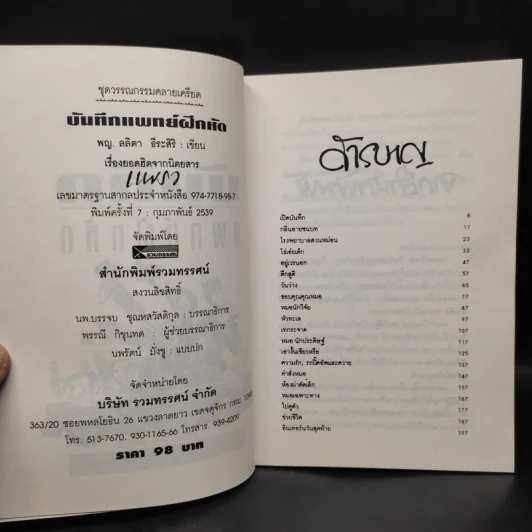 ชุดวรรณกรรมคลายเครียด
บันทึกแพทย์ฝึกหัด
พญ. ลลิตา ธีระสิริ : เขียน
เรื่องยอดฮิตจากนิตยสาร
แพรว
เลขมาตรฐานสากลประจำหนังสือ 974-7718-98-7
พิมพ์ครั้งที่ 7 : กุมภาพันธ์ 2539
จัดพิมพ์โดย
รวมทรรศน์
สำนักพิมพ์รวมทรรศน์
สงวนลิขสิทธิ์
นพ.บรรจบ ชุณหสวัสดิกุล : บรรณาธิการ
พรรณี กิขุนทด : ผู้ช่วยบรรณาธิการ
นพรัตน์ มั่งชู : แบบปก
จัดจำหน่ายโดย
บริษัท รวมทรรศน์ จำกัด
363/20 ซอยพหลโยธิน 26 แขวงลาดยาว เขตจตุจักร กทม.
โทร. 513-7670. 930-1165-66 โทรสาร. 939-4209
ราคา 98 บาท
สารบาญ
เปิดบันทึก 6
กลิ่นอายชนบท 11
โรงพยาบาลสวนหม่อน 23
ไข่เข่ยเด็ก 33
อยู่เวรนอก 47
ตึกสูติ 57
วันว่าง 65
ขอบคุณคุณหมอ 77
หมอนักวิจัย 87
หัวทะเล 97
เทกระจาด 107
หมอ นักประดิษฐ์ 117
เอาลิ้นเชียวหรือ 125
ความรัก, รถปิ๊คอัพและควาย 137
คำสั่งหมอ 147
ห้องผ่าตัดเล็ก 157
หมอเฉพาะทาง 167
ไปดูตัว 177
ช่วยชีวิต 187
อินเทอร์นวันสุดท้าย 197